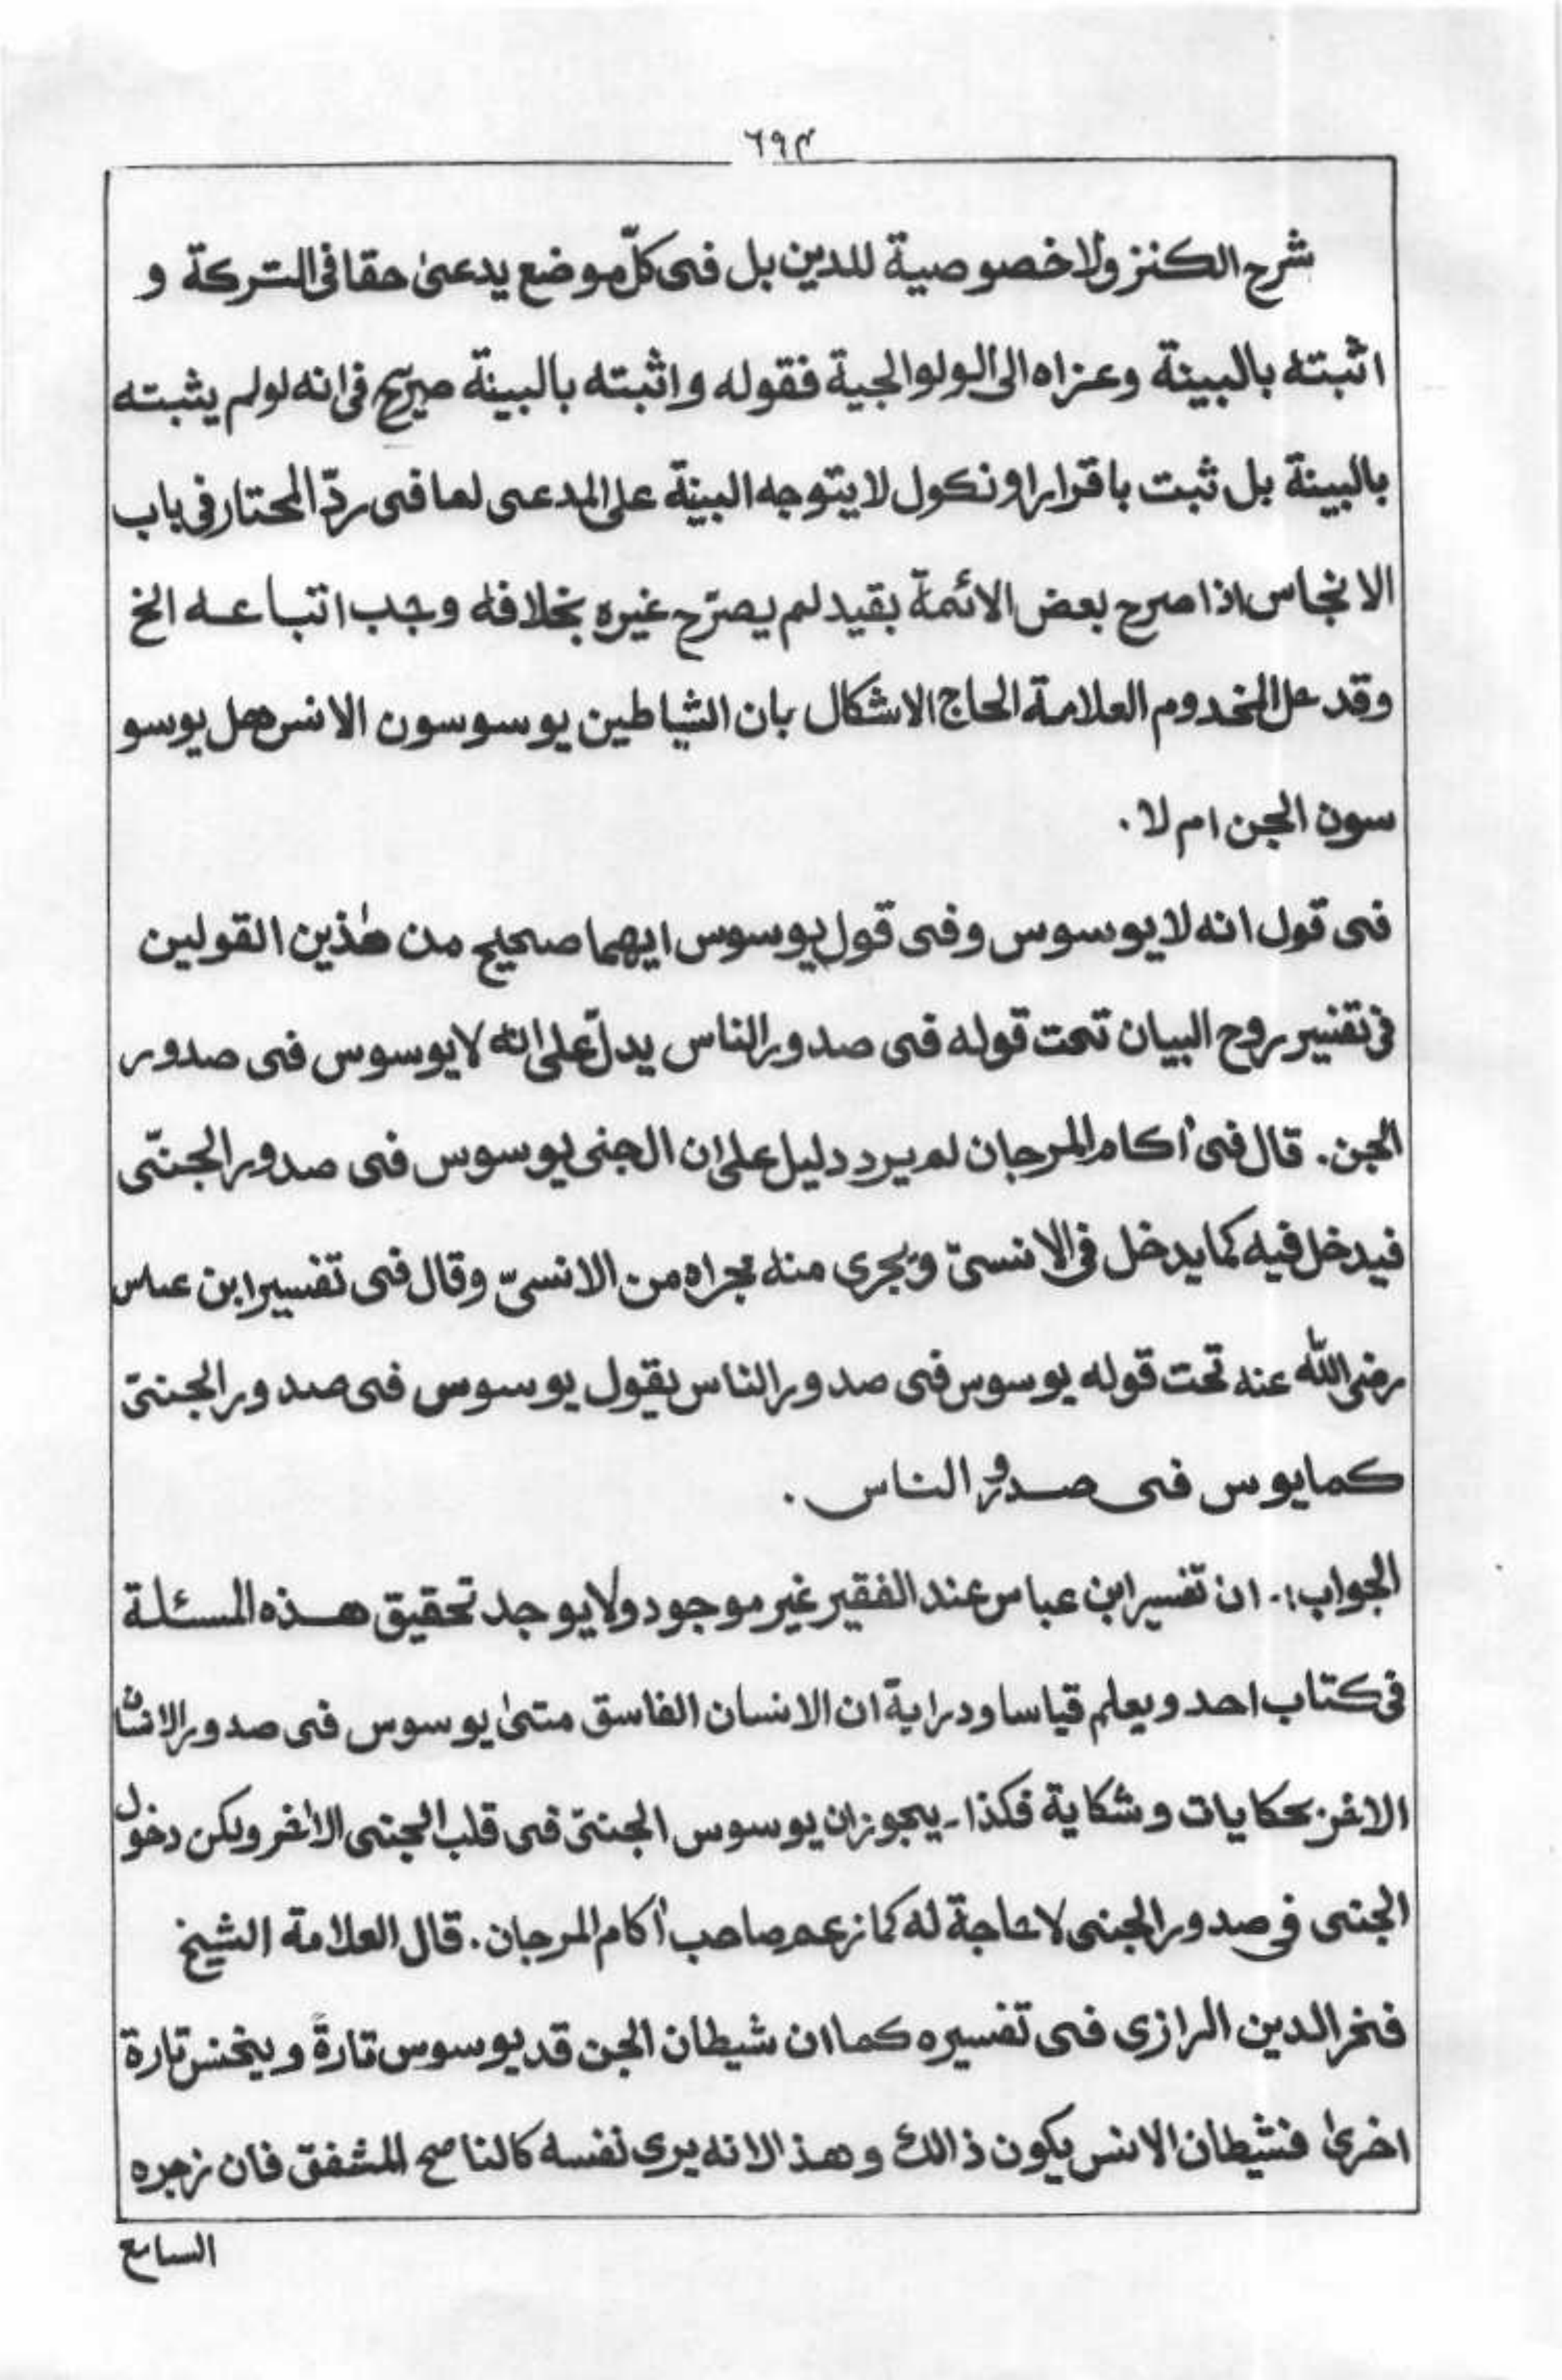 ٦٩٤
شرح الكنز ولا خصوصية للدين بل فى كلّ موضع يدعىٰ حقا فى التركة و
اثبته بالبينة وعزاه الى الولوالجية فقوله واثبته بالبينة صريح فى انه لولم يثبته
بالبينة بل ثبت باقرار او نكول لا يتوجه البينة على المدعى لما فى ردّ المحتار فى باب
الانجاس اذا صرح بعض الائمة بقيد لم يصرّح غيره بخلافه وجب اتباعه الخ
وقد حل المخدوم العلامة الحاج الاشكال بان الشياطين يوسوسون الانس هل يوسو
سون الجن ام لا .
فى قول انه لا يوسوس وفى قول يوسوس ايهما صحيح من هٰذين القولين
فى تفسير روح البيان تحت قوله فى صدور الناس يدلّ على انه لا يوسوس فى صدور
الجن . قال فى أكام المرجان لم يرد دليل على ان الجنى يوسوس فى صدور الجنّى
فيدخل فيه كما يدخل فى الانسىّ ويجرى منه مجراه من الانسىّ وقال فى تفسير ابن عباس
رضى الله عنه تحت قوله يوسوس فى صدور الناس يقول يوسوس فى صدور الجنىّ
كما يوس فى صدور الناس .
الجواب :- ان تفسير ابن عباس عند الفقير غير موجود ولا يوجد تحقيق هذه المسئلة
فى كتاب احد ويعلم قياسا ودراية ان الانسان الفاسق متىٰ يوسوس فى صدور الانسان
الاخر بحكايات وشكاية فكذا - يجوز ان يوسوس الجنىّ فى قلب الجنى الاٰخر ويكن دخول
الجنى فى صدور الجنى لا حاجة له كما زعم صاحب أكام المرجان . قال العلامة الشيخ
فخر الدين الرازى فى تفسيره كما ان شيطان الجن قد يوسوس تارةً وينخنس تارة
اخرىٰ فشيطان الانس يكون ذالك وهذا لانه يرى نفسه كالناصح المشفق فان زجره
السامع